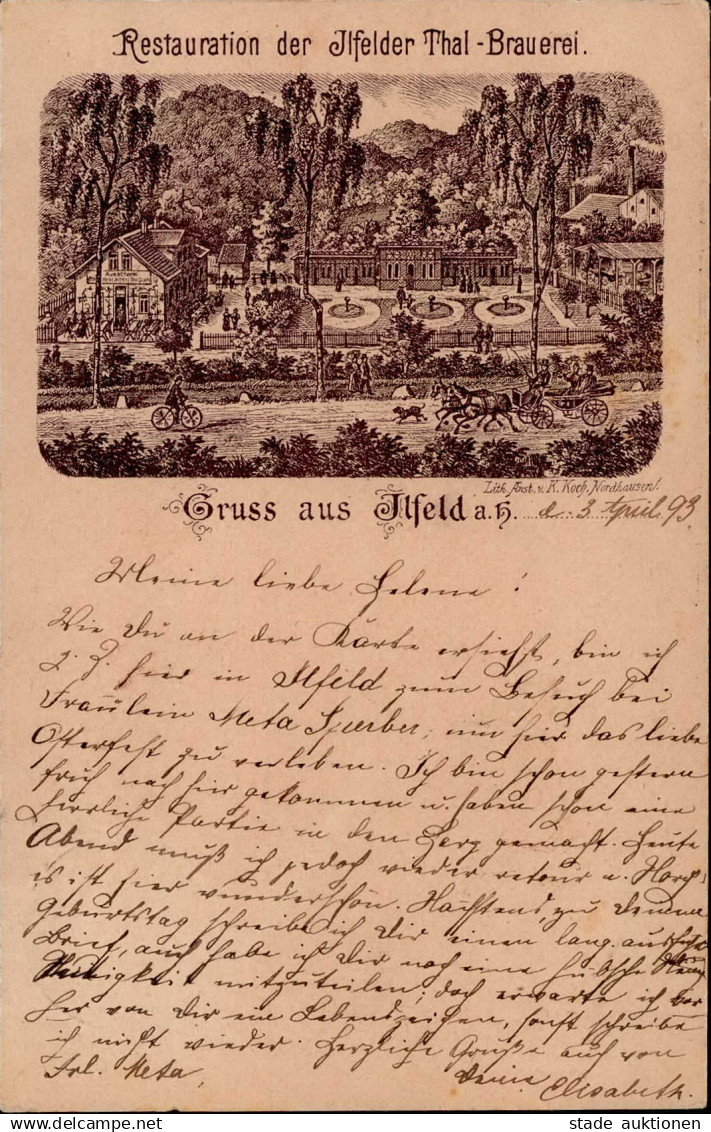 Restauration der Ilfelder Thal-Brauerei.
Lith. Anst. v. K. Koch, Nordhausen.
Gruss aus Ilfeld a. H. d. 3. April 93
Meine liebe Helene!
Wie Du an der Karte ersiehst, bin ich
z. Z. hier in Ilfeld zum Besuch bei
Fräulein Meta Sperber, um hier das liebe
Osterfest zu verleben. Ich bin schon gestern
früh nach hier gekommen u. haben schon eine
herrliche Partie in den Harz gemacht. Heute
Abend muß ich jedoch wieder retour u.
es ist hier wunderschön. Nächstens zu Deinem
Geburtstag schreibe ich Dir einen lang.
Brief, auch habe ich Dir noch eine hübsche
Neuigkeit mitzuteilen; doch erwarte ich vor
her von Dir ein Lebenszeichen, sonst schreibe
ich nicht wieder. Herzliche Grüße auch von
Frl. Meta, Deine Elisabeth.
stade auktionen